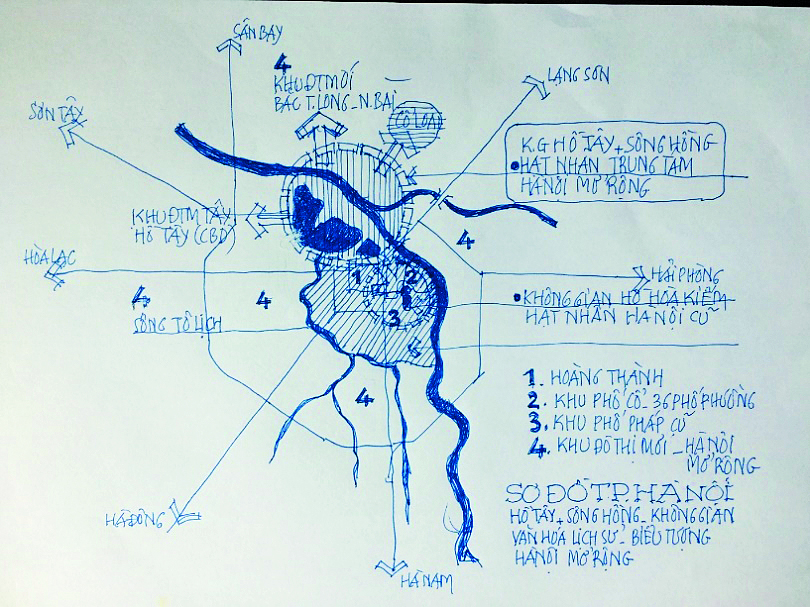 SÂN BAY
4
KHU ĐT MỚI
BẮC T.LONG_N.BÀI
LẠNG SƠN
SƠN TÂY
CỔ LOA
K.G HỒ TÂY + SÔNG HỒNG
HẠT NHÂN TRUNG TÂM
HÀ NỘI MỞ RỘNG
KHU ĐTM TÂY
HỒ TÂY (CBD)
4
HÒA LẠC
HẢI PHÒNG
1
2
4
4
3
KHÔNG GIAN HỒ HOÀ KIẾM
HẠT NHÂN HÀ NỘI CŨ
SÔNG TÔ LỊCH
4
1. HOÀNG THÀNH
2. KHU PHỐ CỔ_36 PHỐ PHƯỜNG
3. KHU PHỐ PHÁP CŨ
4. KHU ĐÔ THỊ MỚI _ HÀ NỘI
MỞ RỘNG
SƠ ĐỒ T.P. HÀ NỘI
HỒ TÂY + SÔNG HỒNG_KHÔNG GIAN
VĂN HÓA LỊCH SỬ_BIỂU TƯỢNG
HÀ NỘI MỞ RỘNG
HÀ ĐÔNG
HÀ NAM